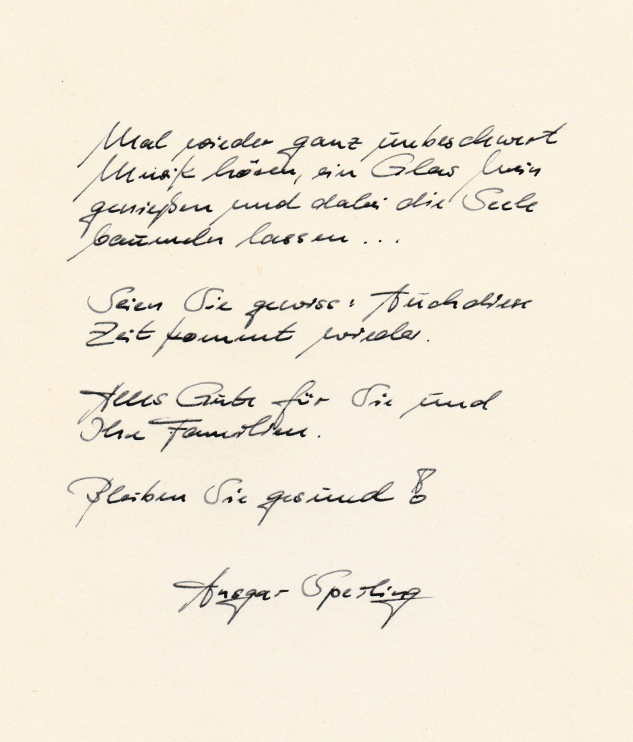 Mal wieder ganz unbeschwert
Musik hören, ein Glas Wein
genießen und dabei die Seele
baumeln lassen ...
Seien Sie gewiss: Auch diese
Zeit kommt wieder.
Alles Gute für Sie und
Ihre Familien.
Bleiben Sie gesund!
Ansgar Sperling